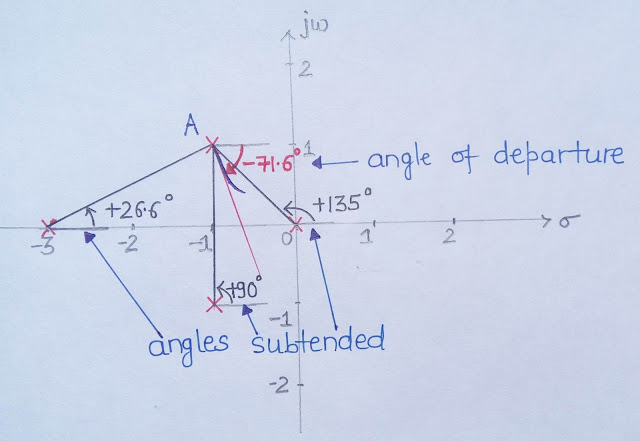 jω
2
A
1
-71.6°
angle of departure
+26.6°
+135°
-3
-2
-1
0
1
2
σ
+90°
-1
angles subtended
-2